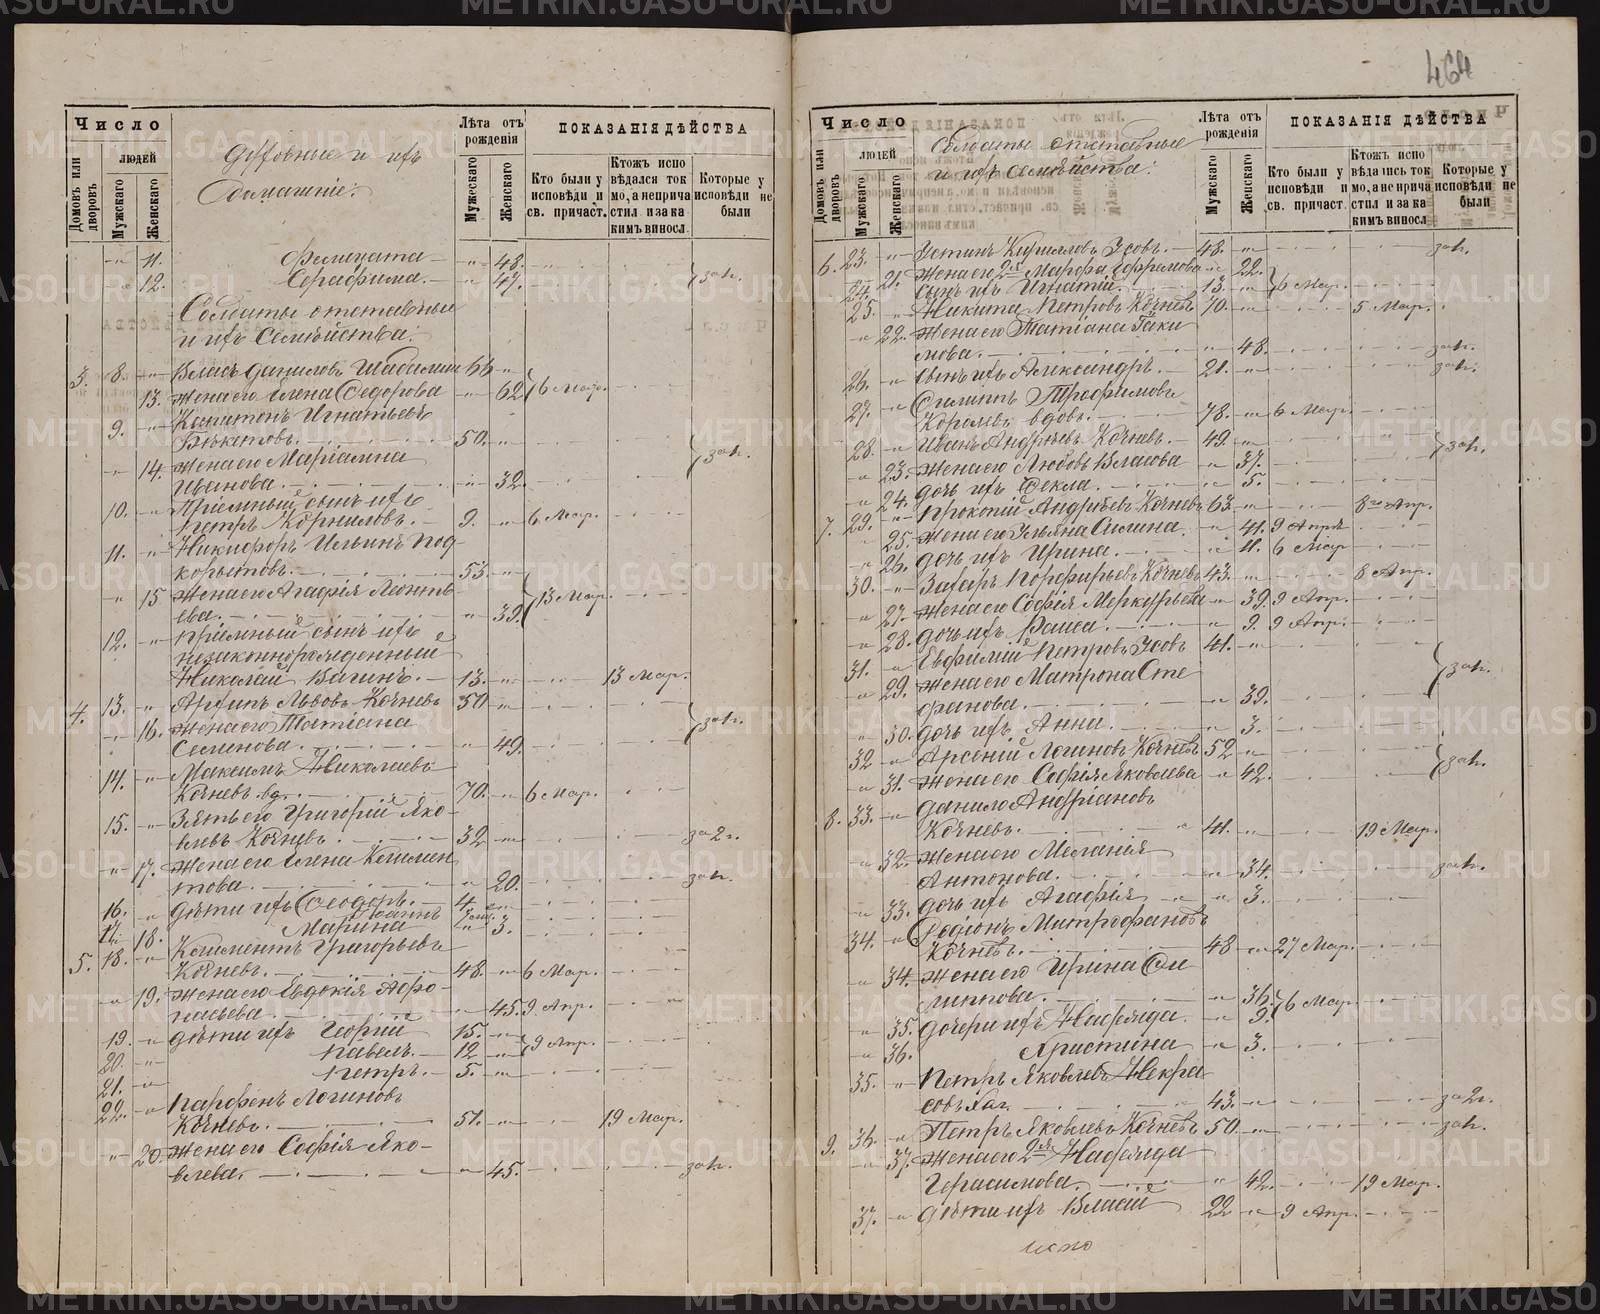 464
Число
людей
Домовъ или дворовъ
Мужскаго
Женскаго
Духовные и ихъ
Домашніе.
Лѣта отъ рожденія
Мужескаго
Женскаго
ПОКАЗАНІЯ ДѢЙСТВА
Кто были у исповѣди и св. причаст.
Ктожъ испо вѣдался ток мо, а неприча стил иза ка кимъ виносл
Которые у исповѣди не были
" 11. Фелицата " 48.
" 12. Серафима. " 47. за 1 г.
Солдаты отставные
и ихъ Семейства:
3. 8. " Власъ Даниловъ 66 "
13. жена его Елена Ѳедорова " 62 6 Мар.
9. " Капитонъ Игнатьевъ
50. "
" 14. жена его
Иванова. " 32. за 1 г.
10. " Пріемный сынъ ихъ
Петръ Корниловъ. 9. " 6 Мар.
11. " Никифоръ Ильинъ Под-
корытовъ. 53. "
" 15 жена его Агафія Леонть-
ева. " 39. 13 Мар.
12. " пріемный сынъ ихъ
незаконнорожденный
Николай Вагинъ. 13. " 13 Мар.
4. 13. " Архипъ Львовъ Кочневъ 50 "
" 16. жена его Татіана
Семенова. " 49. за 1 г.
14. " Максимъ Николаевъ
Кочневъ вд. 70. " 6 Мар.
15. " Зять его Григорій Яко-
влевъ Кочневъ. 32 " за 2 г.
" 17. жена его Елена
" 20. за 1 г.
16. " дѣти ихъ Ѳеодоръ. 4. "
17. Іоаннъ
18. Марина " 3.
5. 18. " Климентъ Григорьевъ
Кочневъ. 48. " 6 Мар.
" 19. жена его Евдокія Афо-
насьева. 45. 9 Апр.
19. " дѣти ихъ Георгій 15. "
20. " Павелъ. 12 " 9 Апр.
21. " Петръ. 5. "
22. " Парфенъ Логиновъ
Кочневъ. 51. " 19 Мар.
" 20. жена его Софія Яко-
влева. " 45. за 1 г.
Число
людей
Домовъ или дворовъ
Мужскаго
Женскаго
Солдаты отставные
и ихъ семейства:
Лѣта отъ рожденія
Мужескаго
Женскаго
ПОКАЗАНІЯ ДѢЙСТВА
Кто были у исповѣди и св. причаст.
Ктожъ испо вѣдался ток мо, а не прича стил иза ка кимъ виносл
Которые у исповѣди не были
6. 23. " Устинъ Кирилловъ Усовъ. 48. " за 1 г.
21. жена его 2я Марфа Ефремова " 22.
24. сынъ ихъ Игнатій. 13. " 6 Мар.
25. " Никита Петровъ Кочневъ 70. " 5 Мар.
" 22. жена его Татіана Еки
мова. " 48. за 1 г.
26. " сынъ ихъ Александръ. 21. " за 1 г.
27. " Филиппъ Трофимовъ
Королевъ вдовъ. 78. " 6 Мар.
28. " Иванъ Андреевъ Кочневъ. 49. "
" 23. жена его Любовь Власова " 37. за 1 г.
" 24. дочь ихъ Ѳекла. " 5.
7. 29. " Прокопій Андреевъ Кочневъ 63. " 8го Апр.
25. жена его Ульяна Силина. " 41. 9 Апрѣ
" 26. дочь ихъ Ирина. " 11. 6 Мар
30. " Захаръ Порфирьевъ Кочневъ 43. " 8 Апр.
" 27. жена его Софія Меркурьева " 39. 9 Апр.
" 28. дочь ихъ Раиса. " 9. 9 Апр.
31. " Евфимій Петровъ Усовъ 41. "
" 29. жена его Матрона Сте
фанова. " 39. за 1 г.
" 30. дочь ихъ Анна. " 3.
32 " Арсеній Логиновъ Кочневъ 52 "
" 31. жена его Софія Яковлева " 42. за 1 г.
8. 33. " Данило Андріановъ
Кочневъ. 41. " 19 Мар.
" 32. жена его Меланія
Антонова. " 34. за 1 г.
" 33. дочь ихъ Агафія " 3.
34. " Родіонъ Митрофановъ
Кочневъ. 48 " 27 Мар.
" 34. жена его Ирина Фи
липпова. " 36. 6 Мар.
" 35. дочери ихъ Надежда. " 9.
" 36. Христина " 3.
35. " Петръ Яковлевъ Некра
совъ 43. " за 2 г.
9. 36. " Петръ Яковлевъ Кочневъ 50. " за 1 г.
" 37. жена его 2я Надежда
Герасимова. " 42. 19 Мар.
37. " дѣти ихъ Власій 22 " 9 Апр.
METRIKI.GASO-URAL.RU